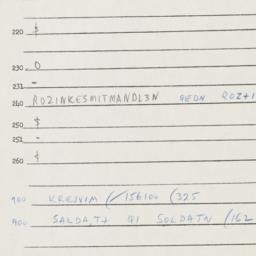 220 $
230 0
231 -
240 ROZINKESMITMANDL3N GEDN ROZ+I
250 $
251 -
260 {
900 KREJVIM (/156100 (325
900 SALDA,T+ QI SOLDATN (162